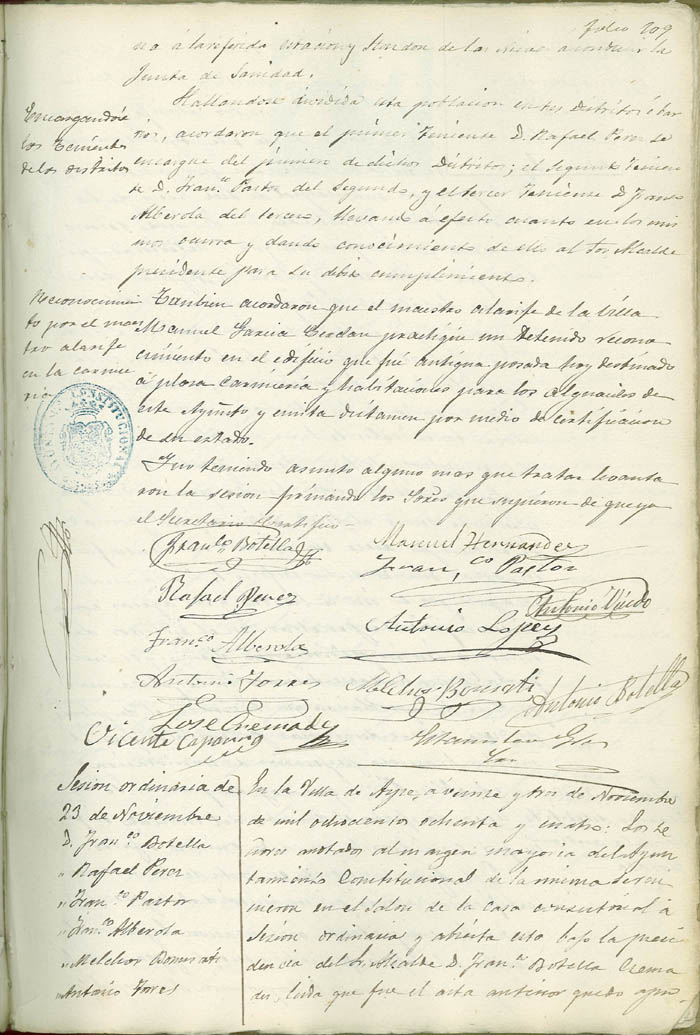 Folio 109
na á la referida estacion y Standon de las nieve acondicir la
Junta de Sanidad.
Encargandose
los Tenientes
de los distritos
Hallandose dividida esta poblacion en tres distritos ó bar
rios, acordaron que el primer Teniente D. Rafael Perez se
encargue del primero de dichos Distritos; el Segundo Tenien
te D. Franco. Pastor del Segundo, y el tercer Teniente D. Franco
Alberola del tercero, llevando á efecto cuanto en los mis
mos ocurra y dando conocimiento de ello al Sor. Alcalde
presidente para su debido cumplimiento.
Reconocimien
to por el maes
tro alarife
en la carnice
ria
Tambien acordaron que el maestro alarife de la Villa
Manuel Garcia Cerdan practique un detenido recono
cimiento en el edificio que fué antigua posada hoy destinado
á plaza Carniceria y habitaciones para los alguaciles de
este Ayunto y emita dictamen por medio de certificacion
de su estado.
Y no teniendo asunto alguno mas que tratar levanta
ron la sesion firmando los Sores que supieron de que yo
el Secretario Certifico
CONSTITUCIONAL
Franco. Botella
Manuel Hernandez
Franco. Pastor
Rafael Perez
Antonio
Franco. Alberola
Antonio Lopez
Antonio Torres
Melchor Bonmati
Antonio Botella
Jose Cremades
Vicente
Estanislao
Sesion ordinaria de
23 de Noviembre
D. Franco Botella
" Rafael Perez
" Franco Pastor
" Franco. Alberola
" Melchor Bonmati
" Antonio Torres
En la Villa de Aspe, á veinte y tres de Noviembre
de mil ochocientos ochenta y cuatro: Los Se
ñores anotados al margen mayoria del Ayun
tamiento Constitucional de la misma se reu
nieron en el Salon de la casa consistorial á
Sesion ordinaria y abierta esta bajo la presi
dencia del Sr. Alcalde D. Franco. Botella Crema
des, leida que fué el acta anterior quedó apro